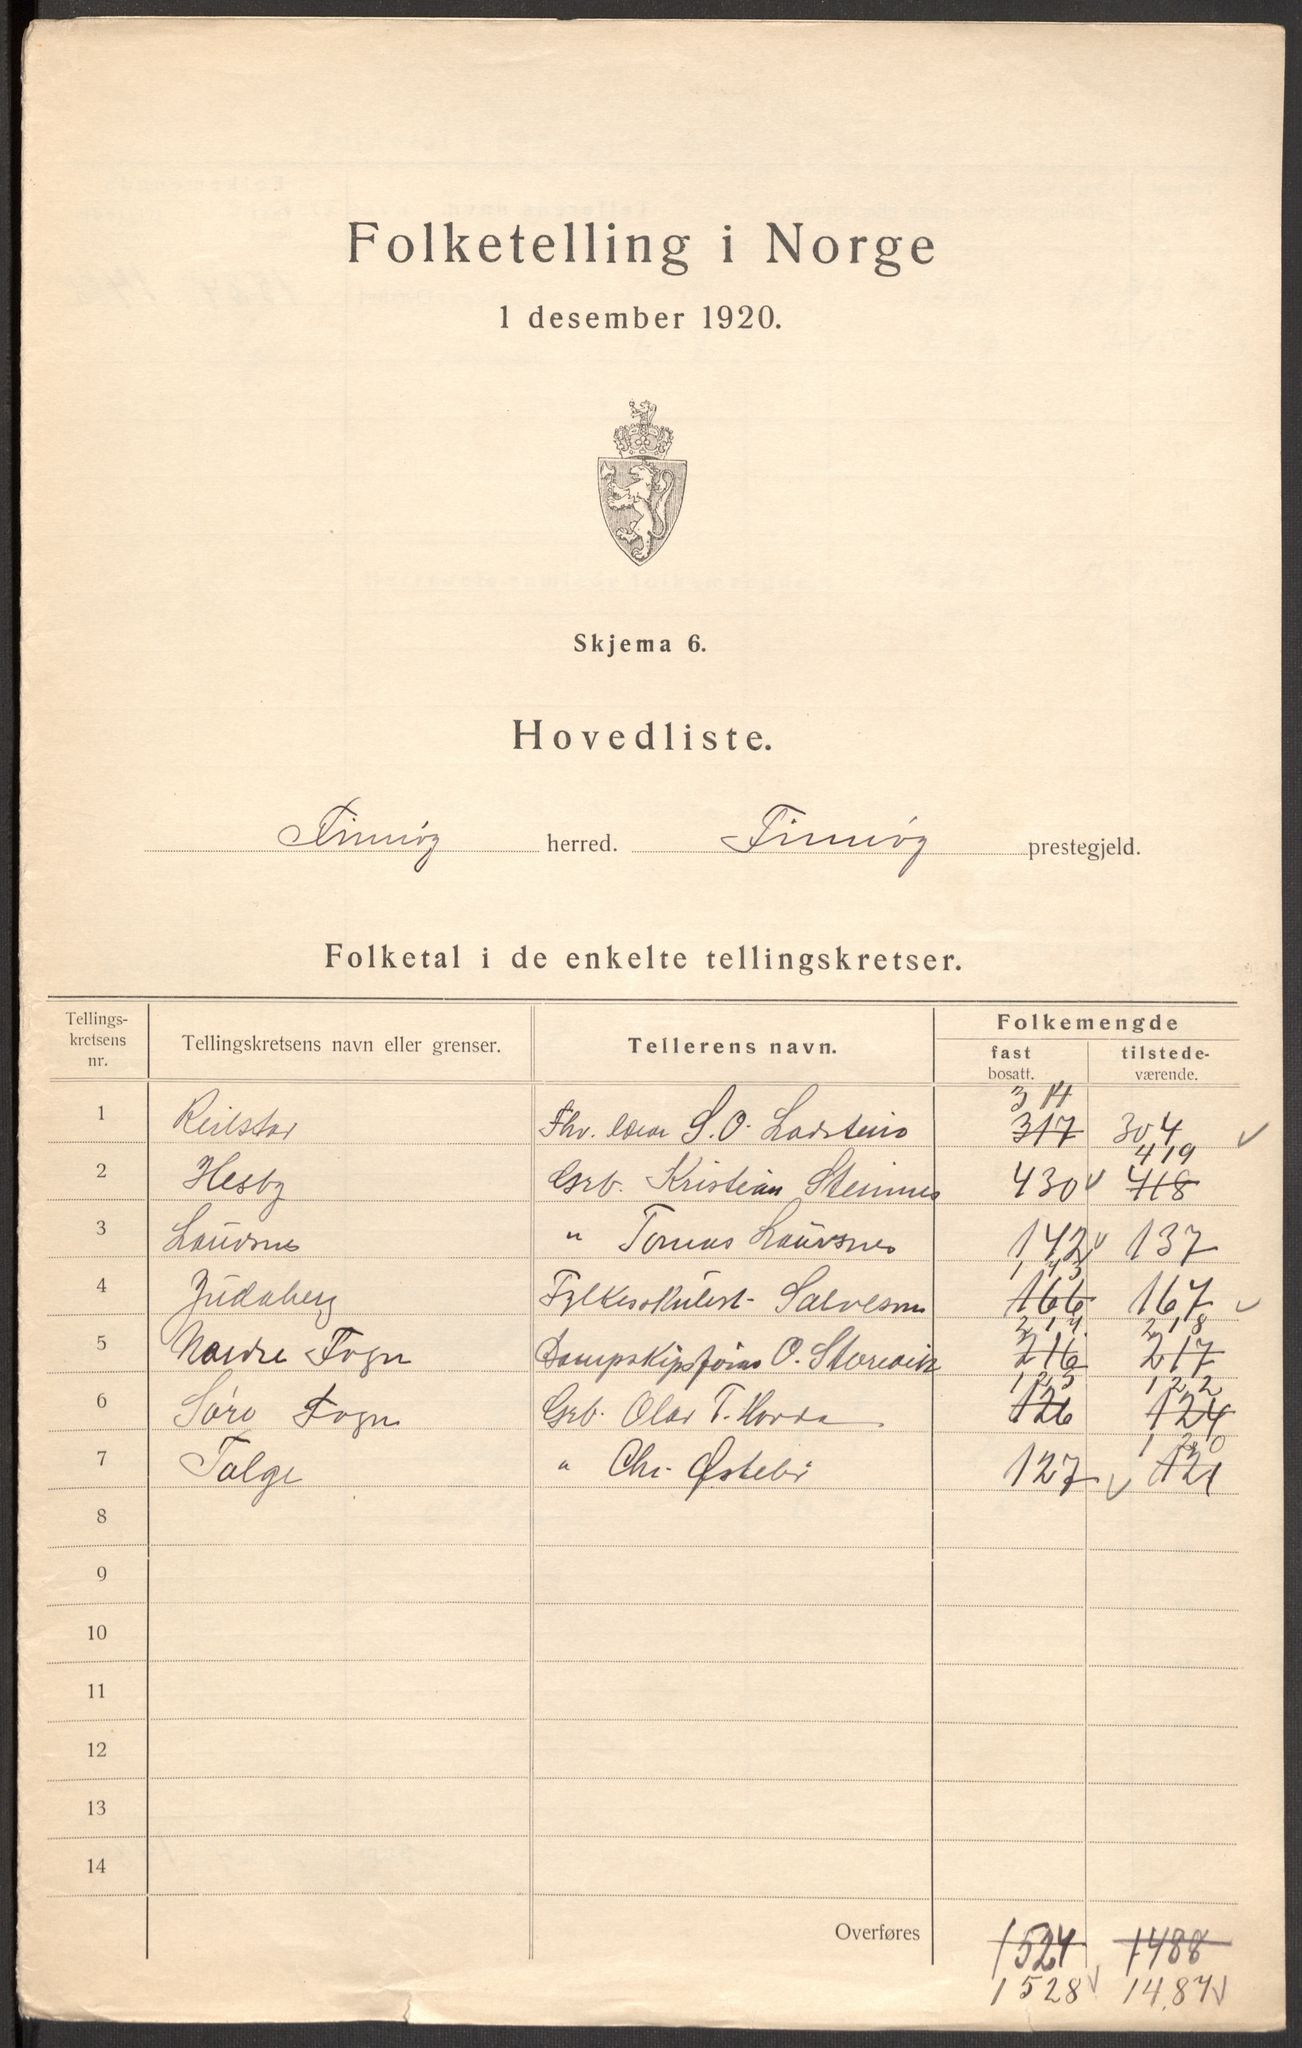 Folketelling i Norge
1 desember 1920.
Skjema 6.
Hovedliste.
Finnøy herred. Finnøy prestegjeld.
Folketal i de enkelte tellingskretser.
Tellings-
kretsens
nr.
Tellingskretsens navn eller grenser.
Tellerens navn.
Folkemengde
fast
bosatt.
tilstede-
værende.
314
1 Reilstad Fhv. lærer S. O. Ladstein 317 304
419
2 Hesby Grb. Kristian Steinnes 430 418
3 Lauvsnes " Tomas Lauvsnes 142 137
173
4 Judaberg Fylkesskulest. Salvesen 166 167
217 218
5 Nordre Fogn Dampskipsfører O. Storevik 216 217
125 122
6 Søre Fogn Grb. Olav T. Horda 126 124
120
7 Talge " Chr. Østebø 127 121
8
9
10
11
12
13
14
Overføres 1524 1488
1528 1487